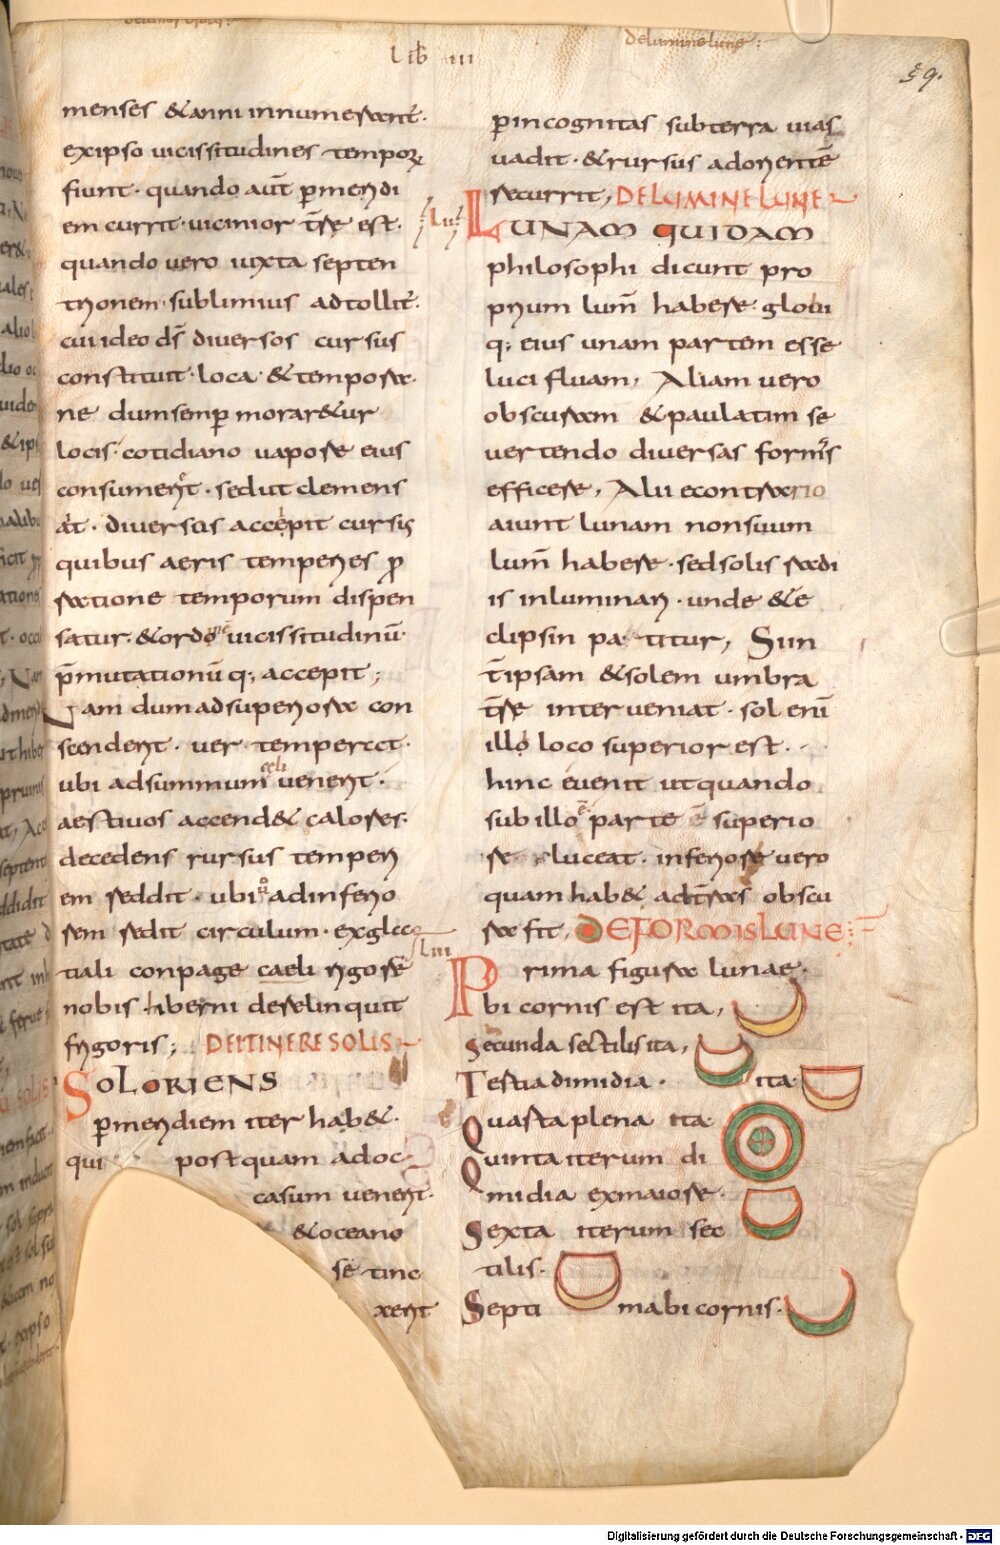 Lib III
de lumine lune:
59.
menses & anni innumerantur.
ex ipso uicissitudines temporum
fiunt. quando aut permeridi
em currit. uicinior trae est.
quando uero iuxta septen
trionem. sublimius adtollit.
cui ideo ds diuersos cursus
constituit. loca & tempora.
ne dum semp morar&ur
locis. cotidiano uapore eius
consumerent. sed ut clemens
ait. diuersos accepit cursus
quibus aeris temperies pro
ratione temporum dispen
satur. & ordo uicissitudinu
pmutationuq; accepit;
Nam dum ad superiora con
scenderit. uer temperet.
ubi ad summum caeli uenerit.
aestiuos accend& calores.
decedens rursus temperi
em reddit. ubi uo ad inferio
rem redit circulum. ex glac
tiali conpage caeli rigore
nobis hiberni derelinquit
frigoris; DE ITINERE SOLIS
SOL ORIENS
p meridiem iter hab&.
qui postquam ad oc
casum uenerit.
& oceano
se tinc
xerit
p incognitas sub terra uias
uadit. & rursus ad oriente
recurrit, DE LUMINE LUNE
LII
LUNAM QUIDAM
philosophi dicunt pro
prium lum habere. globi
q; eius unam partem esse
luci fluam, Aliam uero
obscuram & paulatim se
uertendo diuersas formas
efficere, Alii econtrario
aiunt lunam non suum
lum habere. sed solis radi
is inluminari. unde & e
clipsin patitur, Si in
t ipsam & solem umbra
trae interueniat. sol eni
illo loco superior est.
hinc euenit ut quando
sub illo e parte superio
re luceat. inferiore uero
quam hab& ad tras obscu
ra fit, DE FORMIS LUNE:
LIII
Prima figura lunae.
bi cornis est ita,
Secunda sectilis ita,
Tertia dimidia. ita
Quarta plena ita
Quinta iterum di
midia ex maiore.
Sexta iterum sec
tilis.
Septi ma bi cornis.
Digitalisierung gefördert durch die Deutsche Forschungsgemeinschaft - DFG